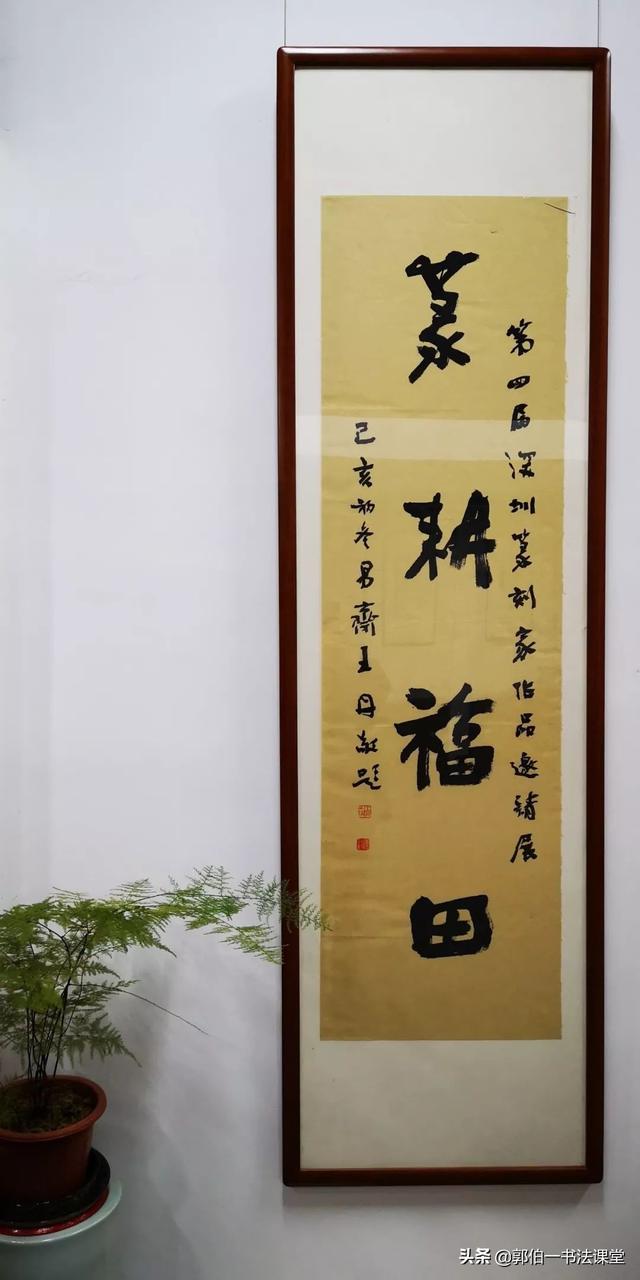 第四届深圳篆刻家作品邀请展
篆耕福田
己亥初冬易斋王丹敬题
头条 @郭伯一书法课堂